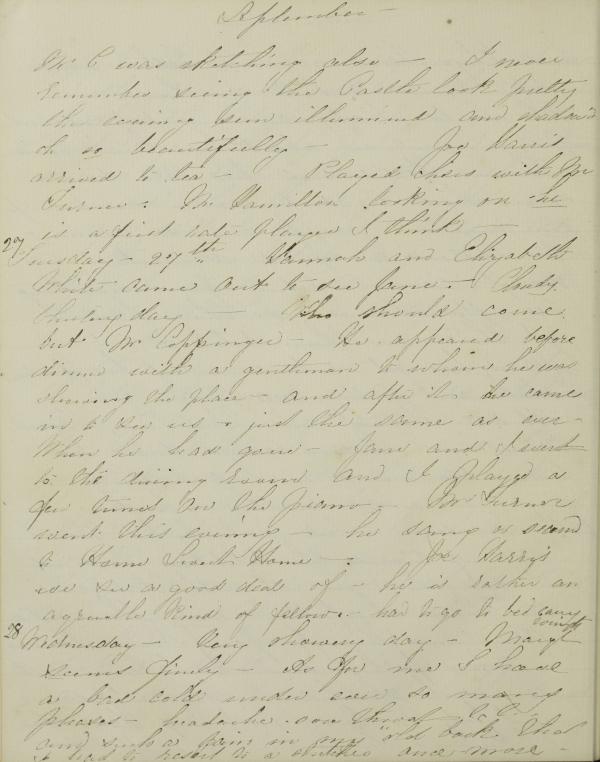 September -
Mr C was sketching also - I never
remember seeing the Castle look pretty
the evening sun illumined and shadow'd
oh so beautifully - Joe Harris
arrived to tea - Played chess with Mr
Turner: Mr Hamilton looking on he
is a first rate player I think -
27 Tuesday - 27th Hannah and Elizabeth
White came out to see Jane - Cloudy
day - Who should come
but Mr Coppinger - He appeared before
dinner with a gentleman to whom he was
showing the place - and after it he came
in to see us - just the same as ever -
When he had gone - Jane and I went
to the dining room and I played a
few tunes on the piano - Mr Turner
went this evening - he sang a second
to Home Sweet Home - Joe Harris
we see a good deal of - he is rather an
agreeable kind of fellow - had to go to bed early
28 Wednesday - Very showery day - Margt
seems finely - As for me I have
a bad cold under ever so many
phases - headache - sore throat
and such a pain in my "old back" that
I had to resort to a once more -